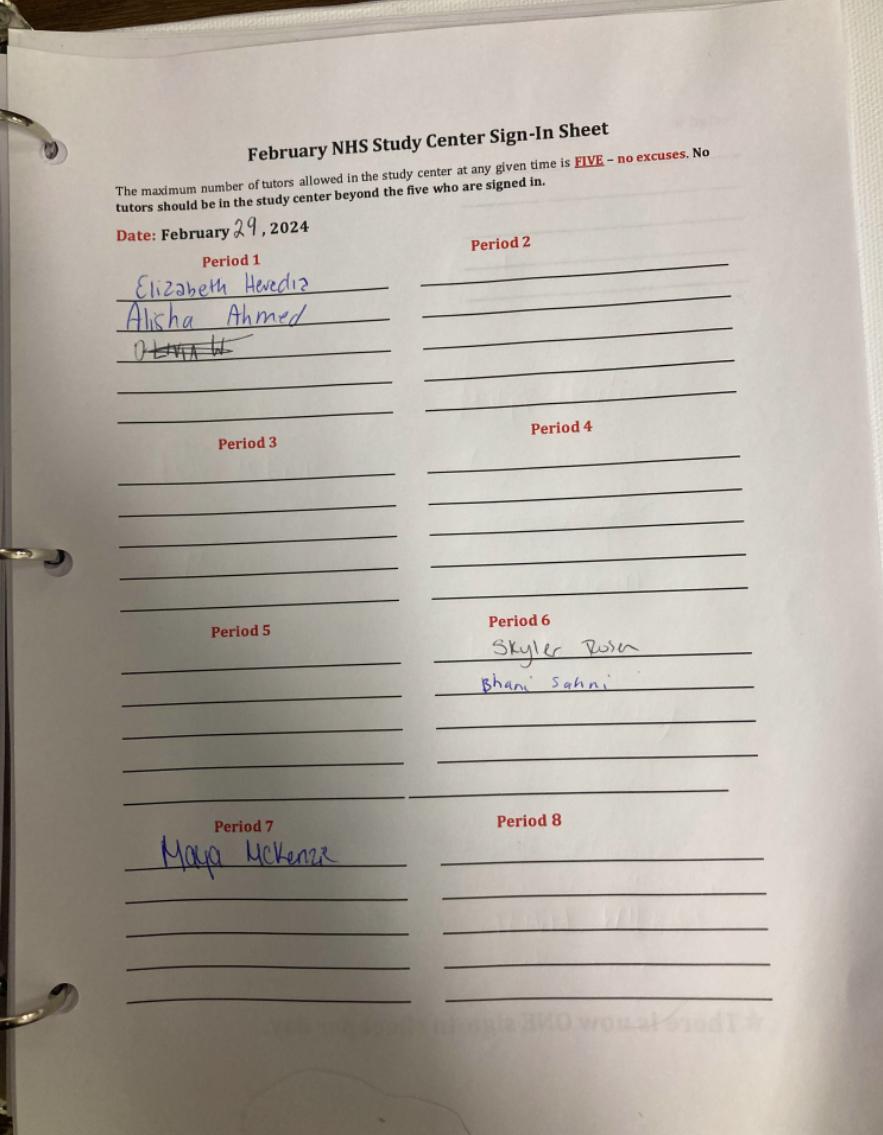 February NHS Study Center Sign-In Sheet
The maximum number of tutors allowed in the study center at any given time is FIVE – no excuses. No
tutors should be in the study center beyond the five who are signed in.
Date: February 29, 2024
Period 1
Elizabeth Heredia
Alisha Ahmed
Period 2
Period 3
Period 4
Period 5
Period 6
Skyler Rosen
Bhani Sahni
Period 7
Maya McKenzie
Period 8